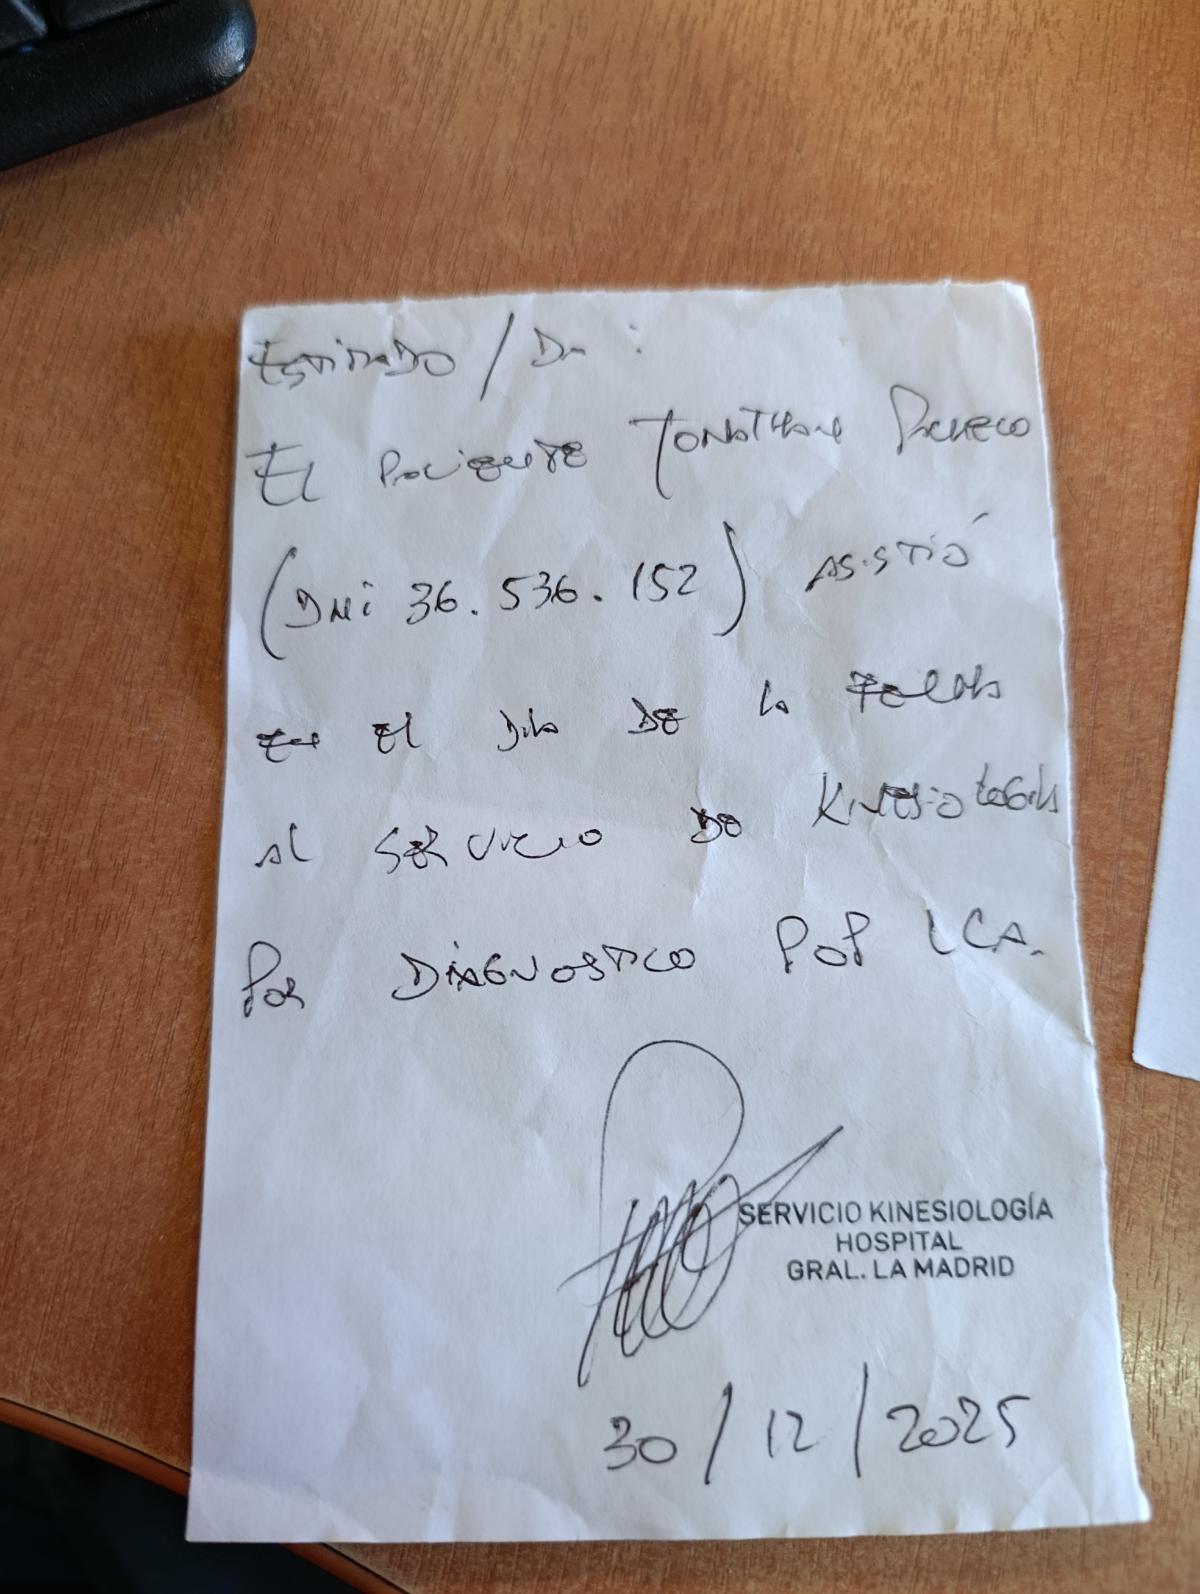 Estimado / Da :
El paciente Jonathan Pacheco
(DNI 36.536.152) asistió
en el día de la fecha
al servicio de Kinesiología
Por DIAGNOSTICO POP LCA.
SERVICIO KINESIOLOGÍA
HOSPITAL
GRAL. LA MADRID
30/12/2025